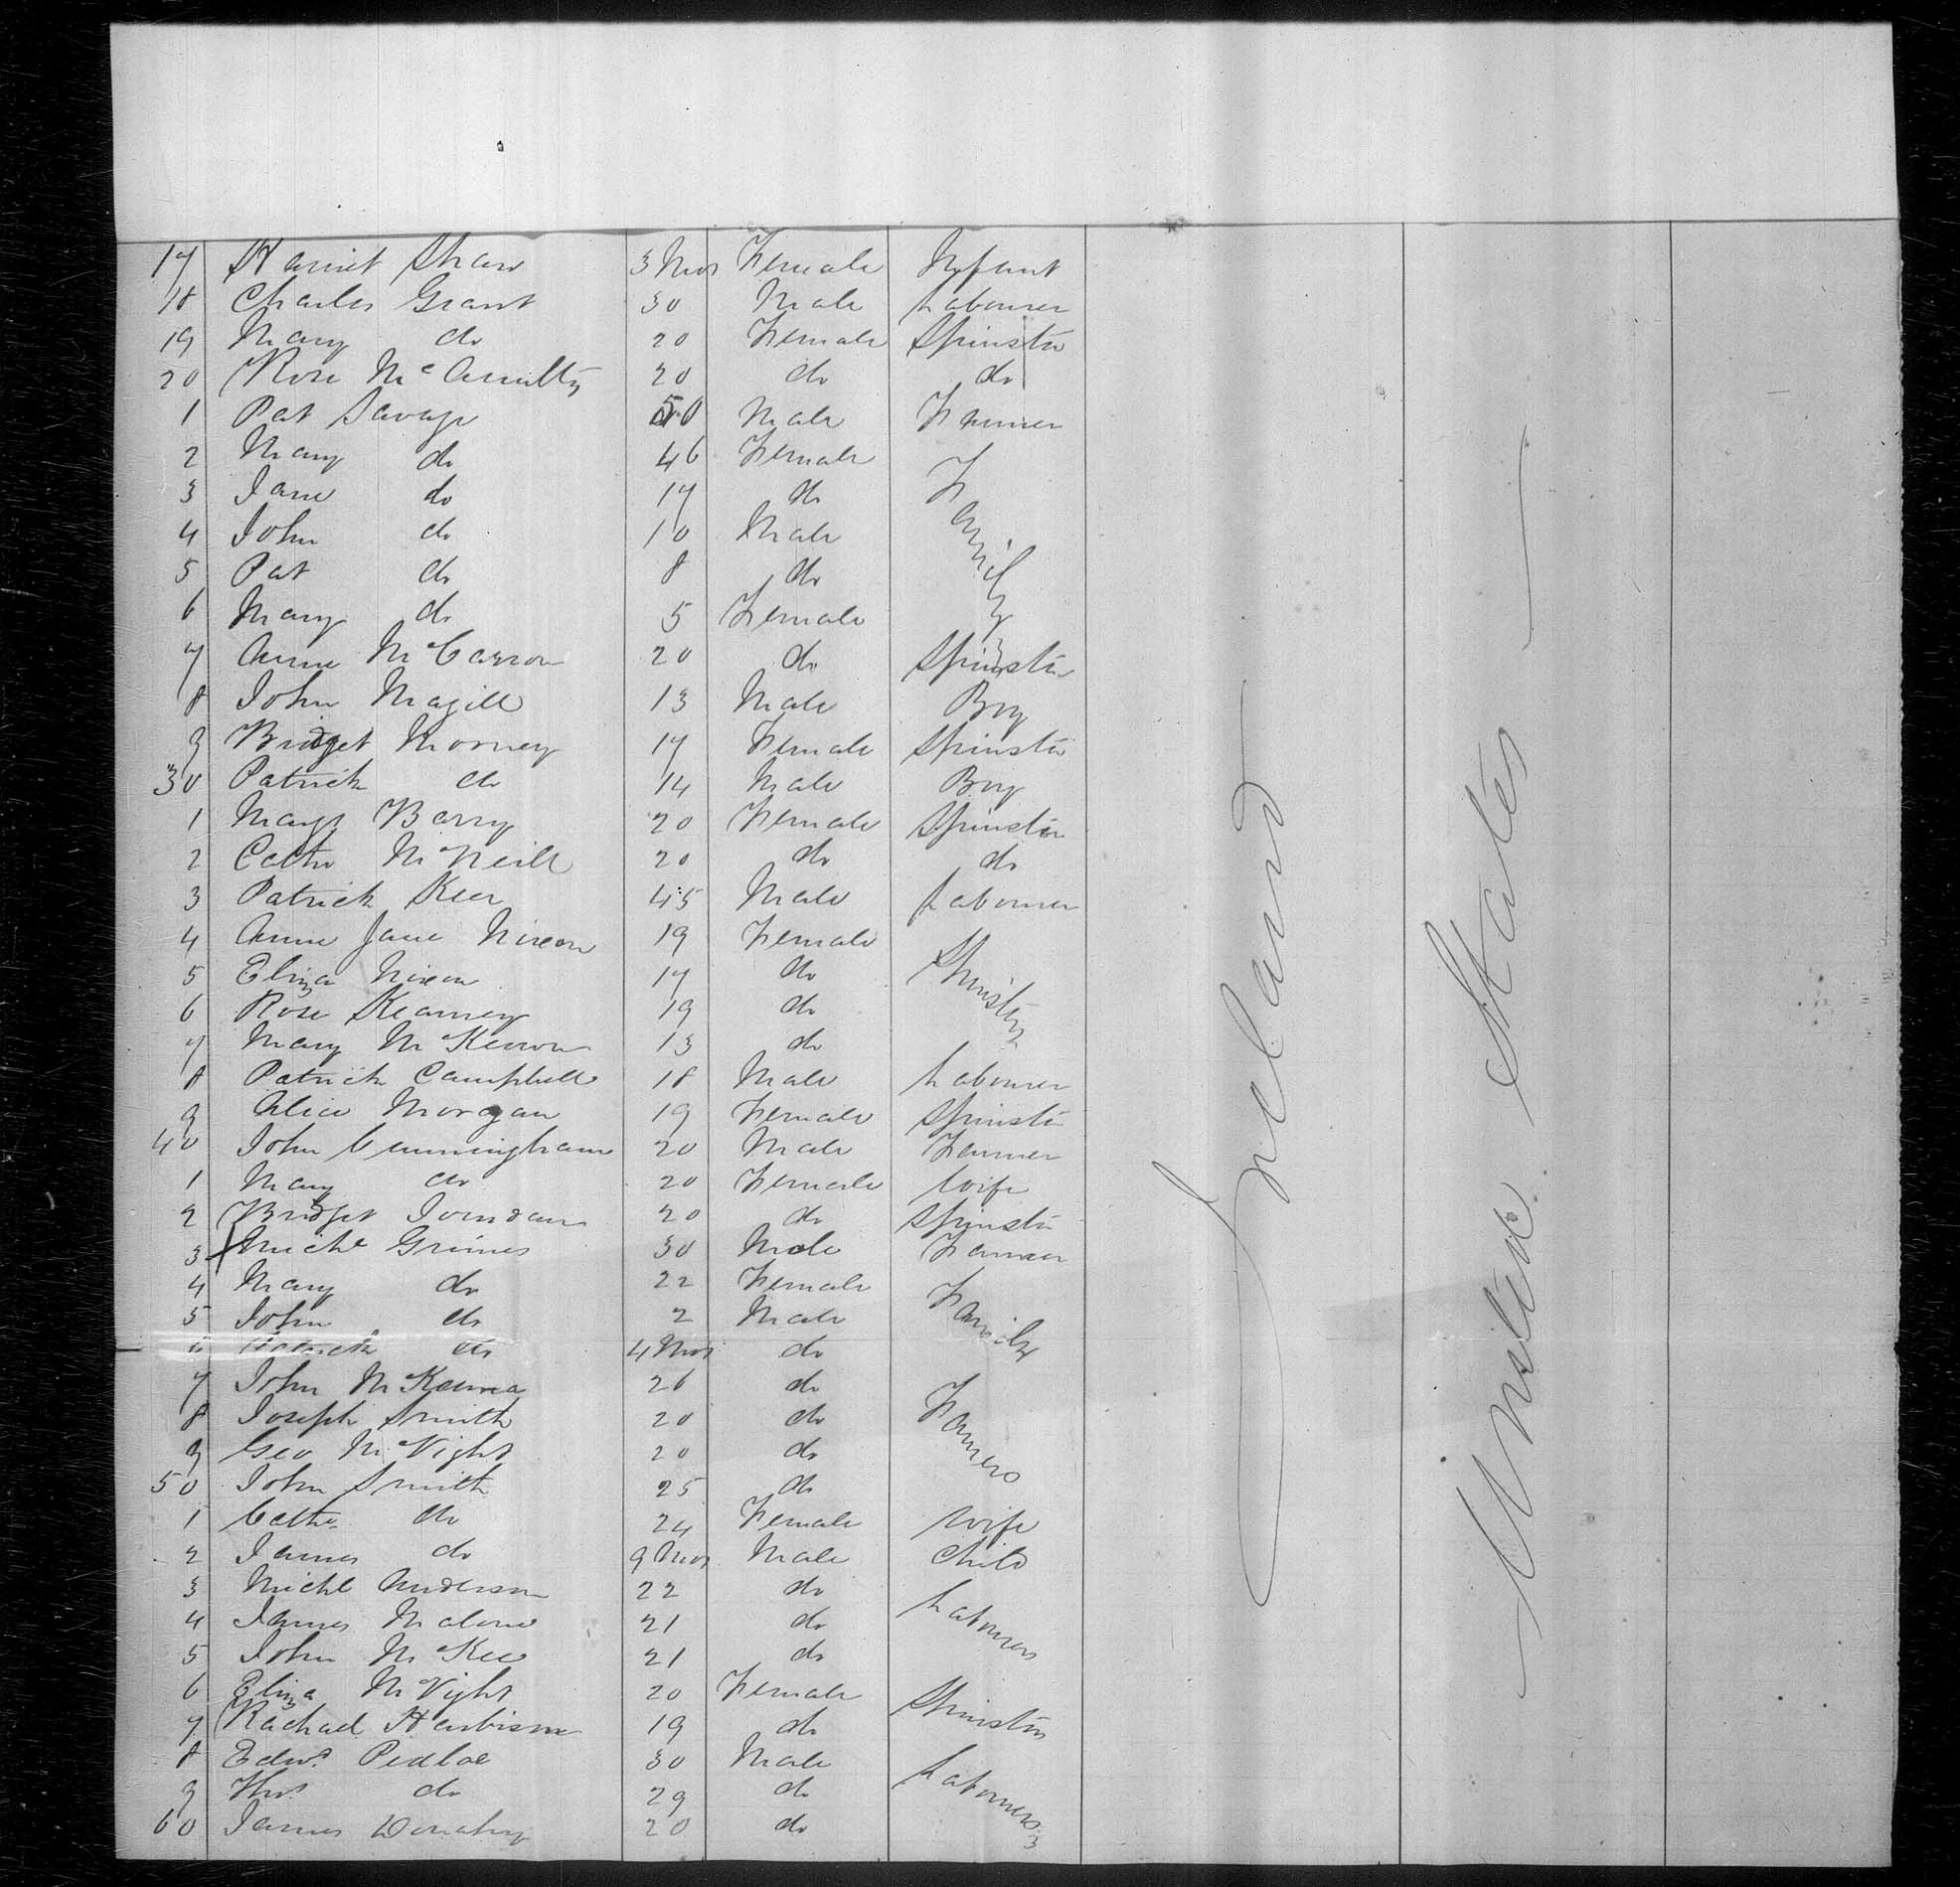 17 Harriet Shaw 3 Mos Female Infant
18 Charles Grant 30 Male Labourer
19 Mary do 20 Female Spinster
20 Rose McAnulty 20 do do
1 Pat Savage 50 Male Farmer
2 Mary do 46 Female
3 Jane do 17 do Family
4 John do 10 Male
5 Pat do 8 do
6 Mary do 5 Female
7 Anne McCarron 20 do Spinster
8 John Magill 13 Male Boy
9 Bridget Morney 17 Female Spinster
30 Patrick do 14 Male Boy
1 Mary Barry 20 Female Spinster
2 Cathe McNeill 20 do do
3 Patrick Keer 45 Male Labourer
4 Anne Jane Nixon 19 Female
5 Eliza Nixon 17 do Spinsters
6 Rose Kearney 19 do
7 Mary McKeown 13 do
8 Patrick Campbell 18 Male Labourer
9 Alice Morgan 19 Female Spinster
40 John Cunningham 20 Male Farmer
1 Mary do 20 Female Wife
2 Bridget Jourdan 20 do Spinster
3 Michl Grimes 30 Male Farmer
4 Mary do 22 Female
5 John do 2 Male Family
6 do 4 Mos do
7 John McKenna 26 do
8 Joseph Smith 20 do Farmers
9 Geo McVight 20 do
50 John Smith 25 do
1 Cathe do 24 Female Wife
2 James do 9 Mos Male Child
3 Michl Anderson 22 do
4 James Malone 21 do Labourers
5 John McKee 21 do
6 Eliza McVight 20 Female
7 Rachael Harbison 19 do Spinsters
8 Edwd. Pedloe 30 Male
9 Thos. do 29 do Labourers
60 James Donahy 20 do
Ireland
United States